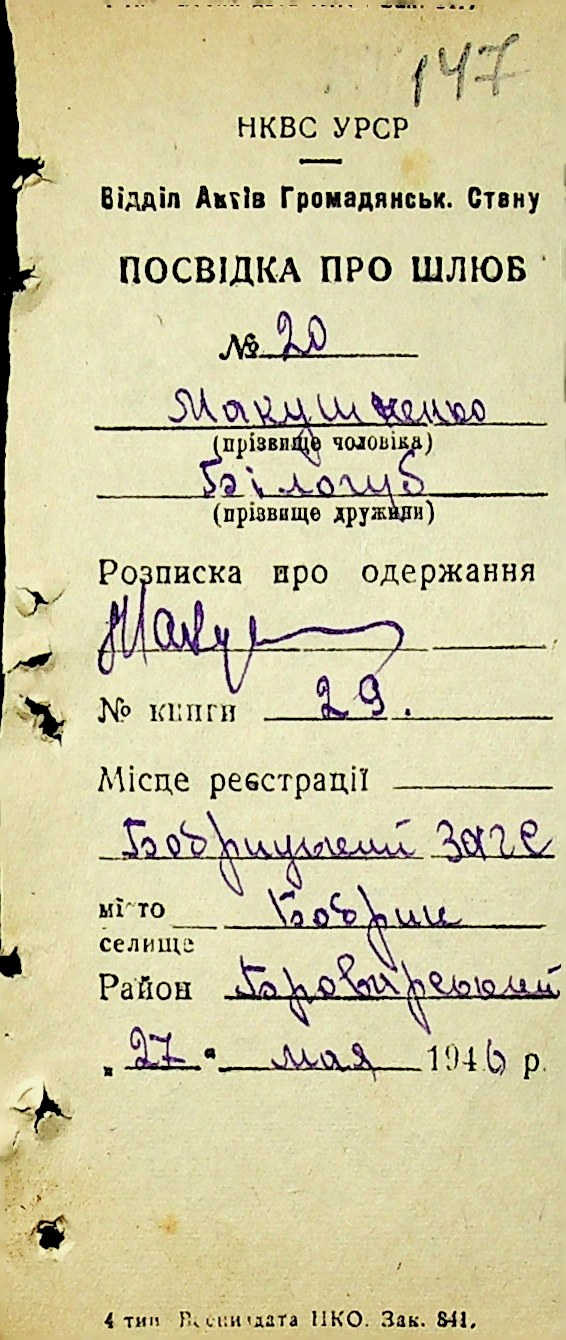 147
НКВС УРСР
Відділ Актів Громадянськ. Стану
ПОСВІДКА ПРО ШЛЮБ
№ 20
Макушненко
(прізвище чоловіка)
Білогуб
(прізвище дружини)
Розписка про одержання
№ книги 29.
Місце реєстрації
Бобрицький ЗАГС
місто Бобрик
селище
Район Броварський
„27“ мая 1946 р.
4 тип. Воениздата НКО. Зак. 841.